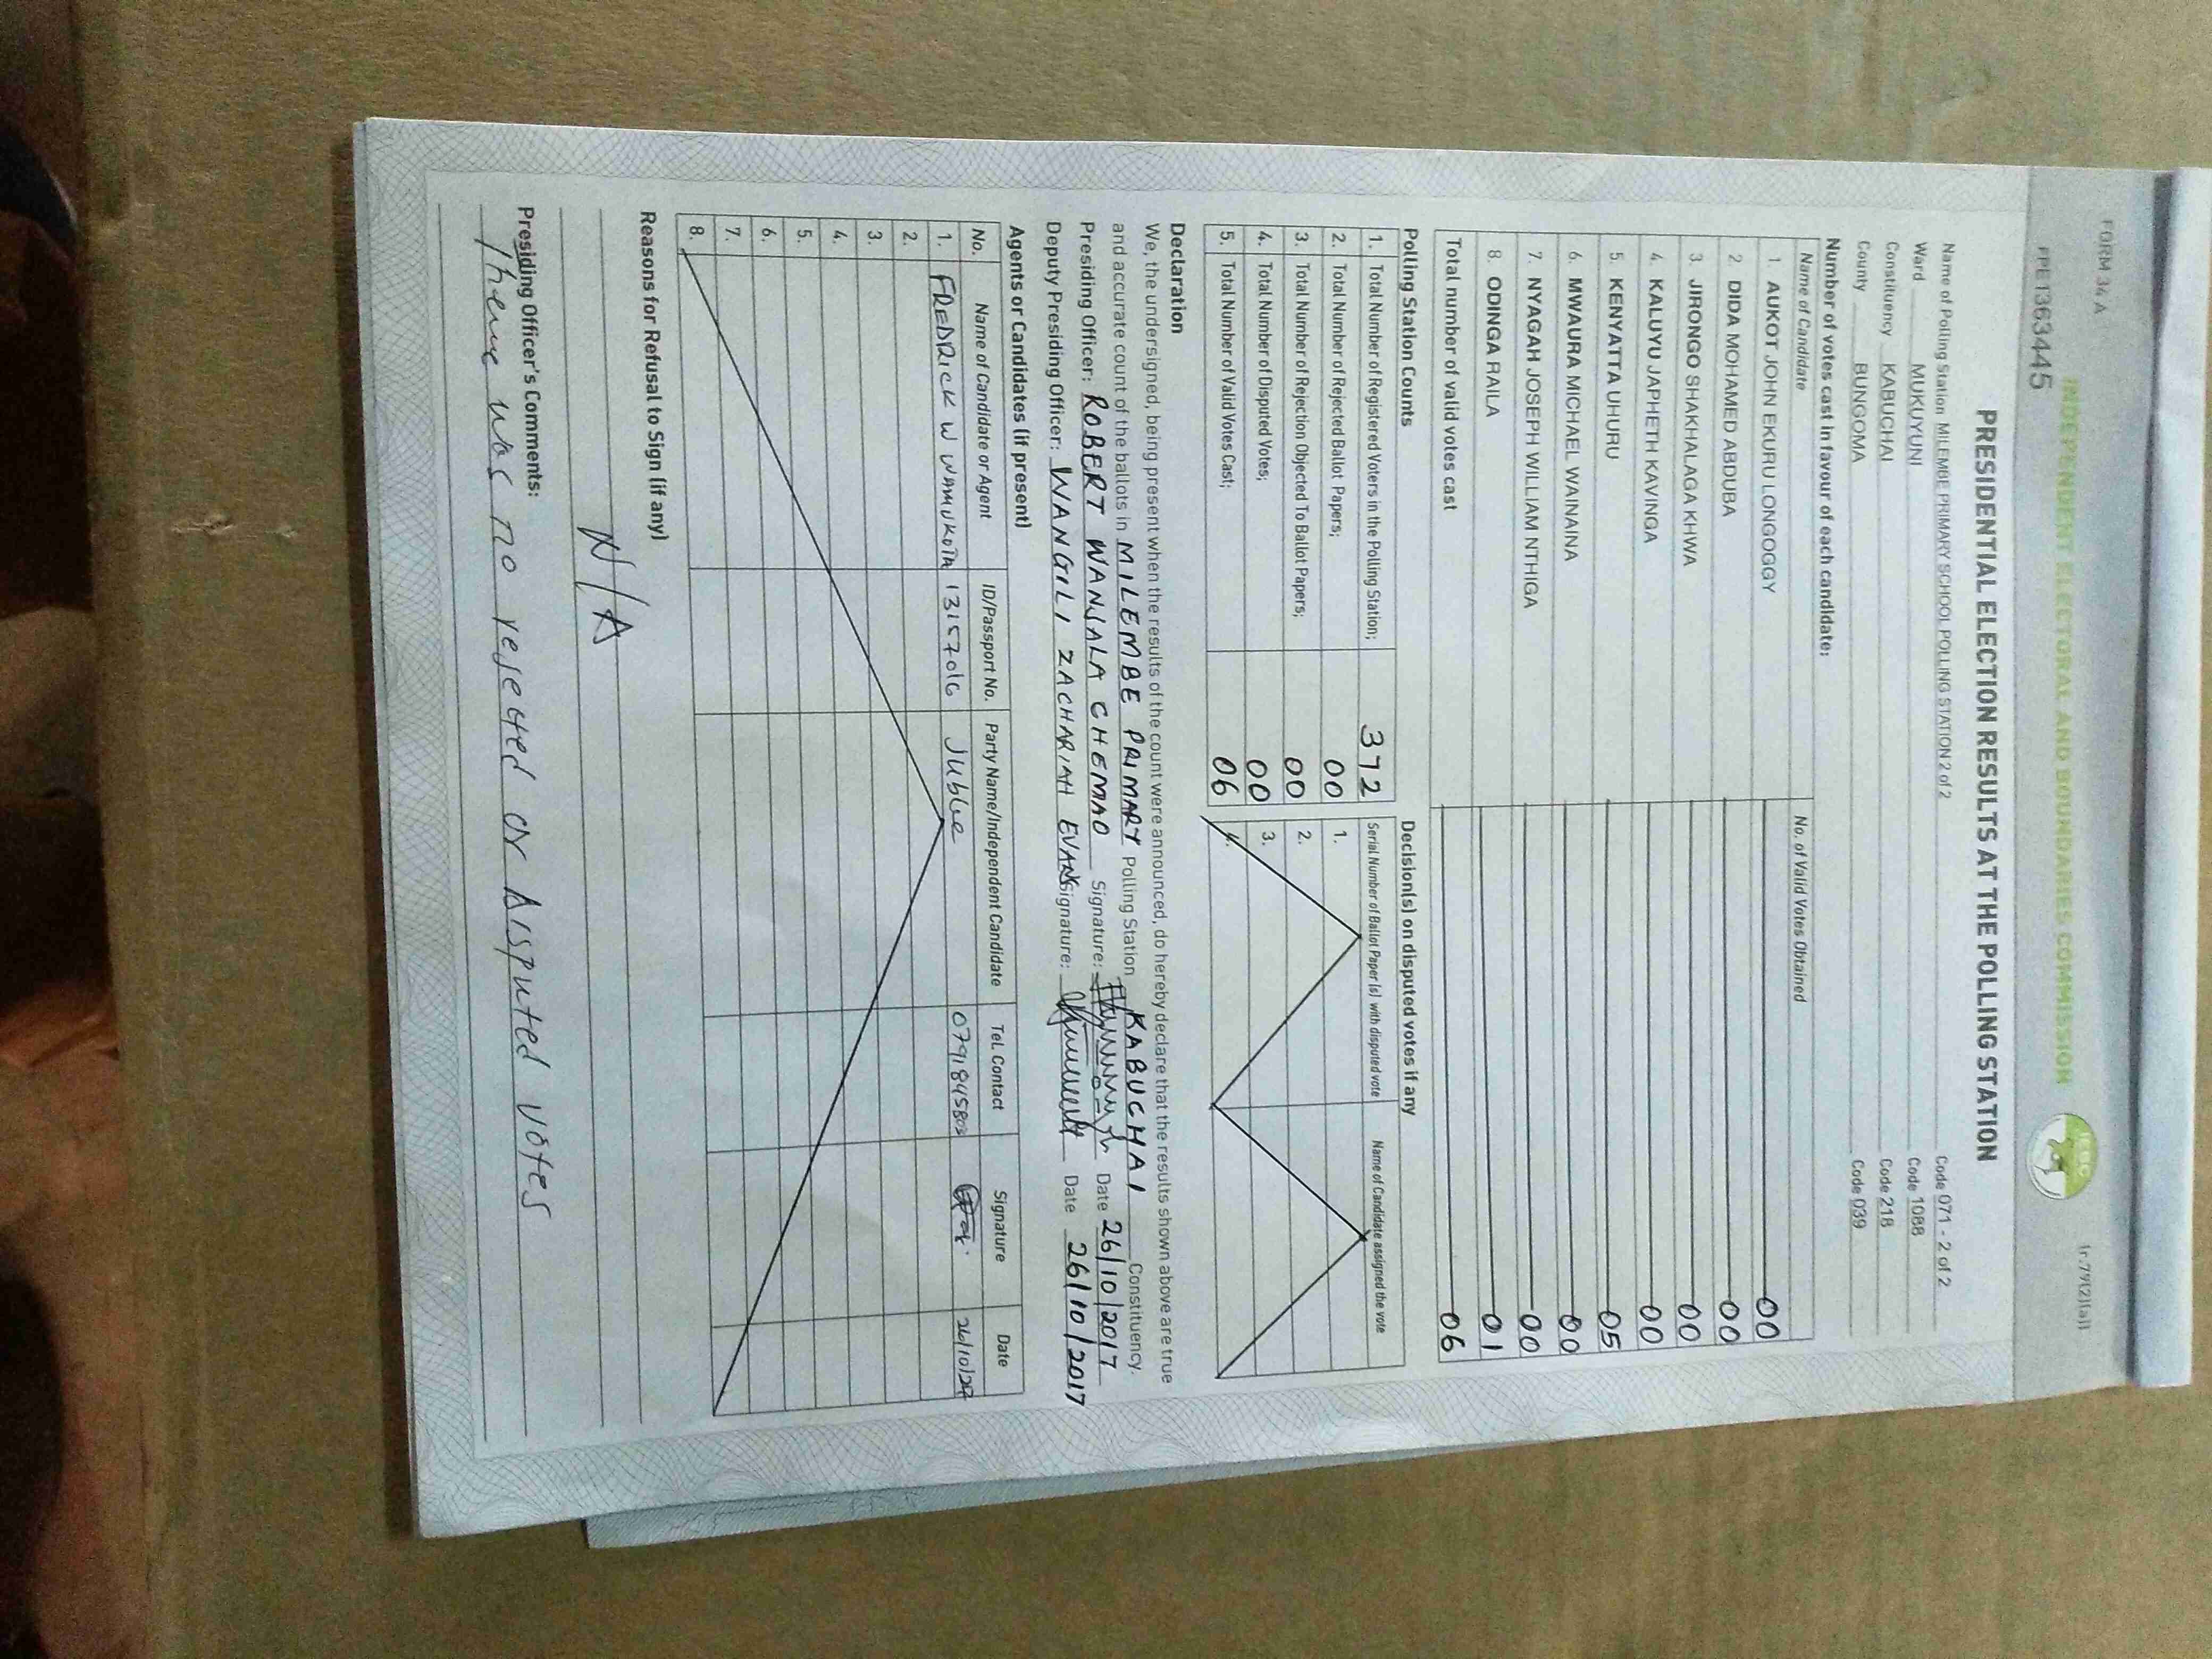 FORM 34 A
(r.79(2)(a))
INDEPENDENT ELECTORAL AND BOUNDARIES COMMISSION
IEBC
PPE1363445
PRESIDENTIAL ELECTION RESULTS AT THE POLLING STATION
Name of Polling Station MILEMBE PRIMARY SCHOOL POLLING STATION 2 of 2 Code 071 - 2 of 2
Ward MUKUYUNI Code 1088
Constituency KABUCHAI Code 218
County BUNGOMA Code 039
Number of votes cast in favour of each candidate:
Name of Candidate No. of Valid Votes Obtained
1. AUKOT JOHN EKURU LONGOGGY 00
2. DIDA MOHAMED ABDUBA 00
3. JIRONGO SHAKHALAGA KHWA 00
4. KALUYU JAPHETH KAVINGA 00
5. KENYATTA UHURU 05
6. MWAURA MICHAEL WAINAINA 00
7. NYAGAH JOSEPH WILLIAM NTHIGA 00
8. ODINGA RAILA 01
Total number of valid votes cast 06
Polling Station Counts Decision(s) on disputed votes if any
1. Total Number of Registered Voters in the Polling Station; 372 Serial Number of Ballot Paper (s) with disputed vote Name of Candidate assigned the vote
2. Total Number of Rejected Ballot Papers; 00 1.
3. Total Number of Rejection Objected To Ballot Papers; 00 2.
4. Total Number of Disputed Votes; 00 3.
5. Total Number of Valid Votes Cast; 06 4.
Declaration
We, the undersigned, being present when the results of the count were announced, do hereby declare that the results shown above are true
and accurate count of the ballots in MILEMBE PRIMARY Polling Station KABUCHAI Constituency.
Presiding Officer: ROBERT WANJALA CHEMAO Signature: Date 26/10/2017
Deputy Presiding Officer: WANGILI ZACHARIAH EVANS Signature: Date 26/10/2017
Agents or Candidates (if present)
No. Name of Candidate or Agent ID/Passport No. Party Name/Independent Candidate Tel. Contact Signature Date
1. FREDRICK W WAMUKOTA 13157016 Jublee 0791845803 26/10/2017
2.
3.
4.
5.
6.
7.
8.
Reasons for Refusal to Sign (if any)
N/A
Presiding Officer's Comments:
There was no rejected or disputed votes